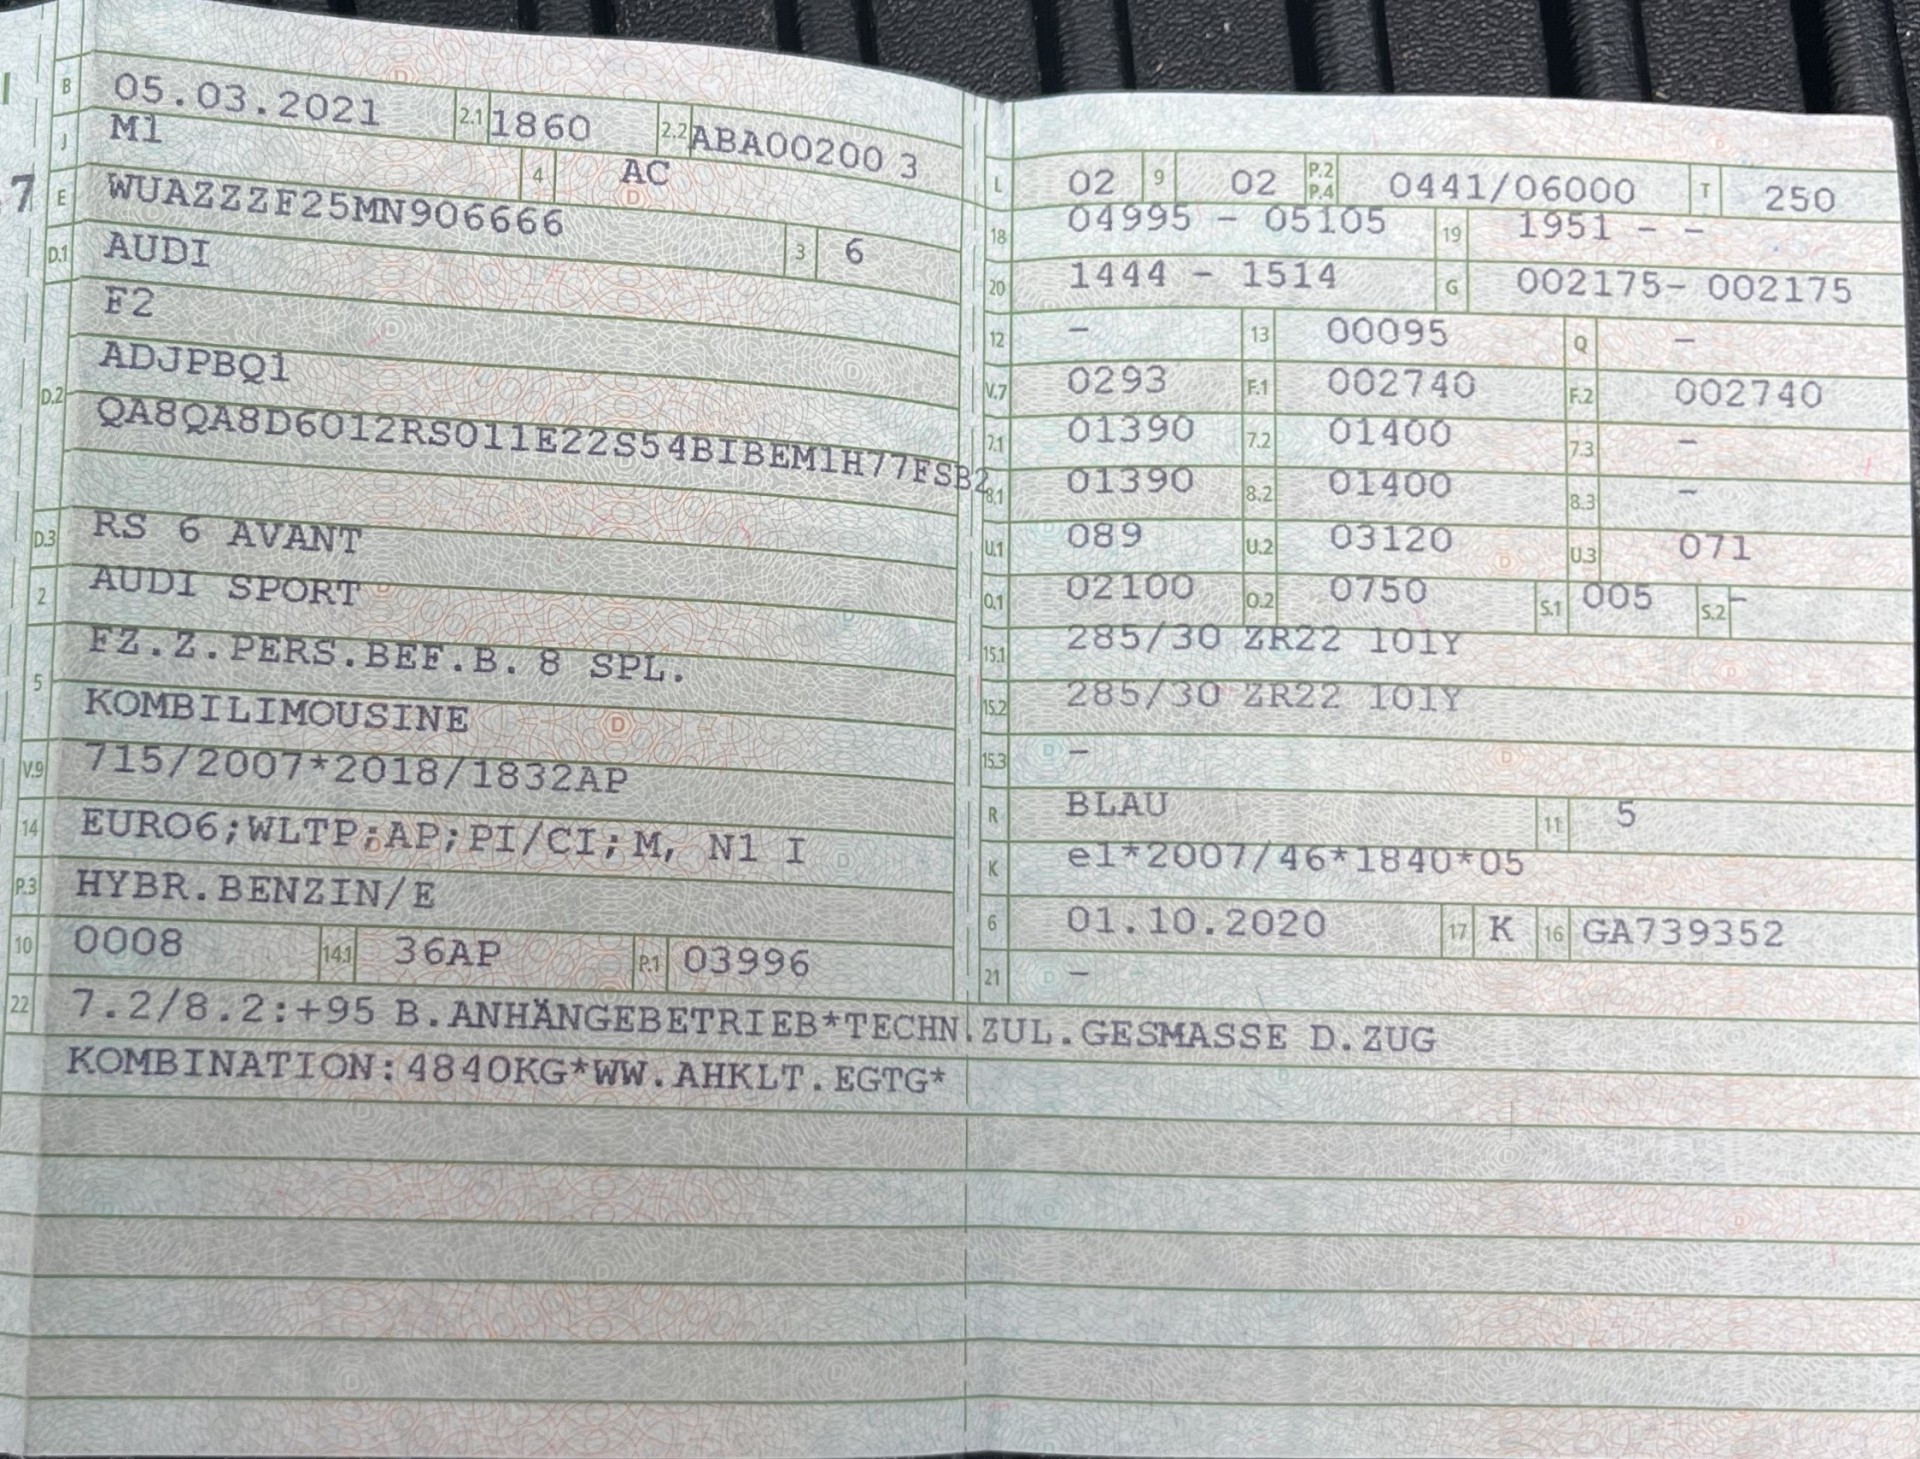 B 05.03.2021 2.1 1860 2.2 ABA00200 3
J M1 4 AC
7
E WUAZZZF25MN906666 3 6
D.1 AUDI
F2
D.2 ADJPBQ1
QA8QA8D6012RS011E22S54BIBEM1H77FSB2
D.3 RS 6 AVANT
2 AUDI SPORT
5 FZ.Z.PERS.BEF.B. 8 SPL.
KOMBILIMOUSINE
V.9 715/2007*2018/1832AP
14 EURO6;WLTP;AP;PI/CI;M, N1 I
P.3 HYBR.BENZIN/E
10 0008 14.1 36AP P.1 03996
L 02 9 02 P.2 P.4 0441/06000 T 250
18 04995 - 05105 19 1951 - -
20 1444 - 1514 G 002175- 002175
12 - 13 00095 Q -
V.7 0293 F.1 002740 F.2 002740
7.1 01390 7.2 01400 7.3 -
8.1 01390 8.2 01400 8.3 -
U.1 089 U.2 03120 U.3 071
O.1 02100 O.2 0750 S.1 005 S.2 -
15.1 285/30 ZR22 101Y
15.2 285/30 ZR22 101Y
15.3 -
R BLAU 11 5
K e1*2007/46*1840*05
6 01.10.2020 17 K 16 GA739352
21 -
22 7.2/8.2:+95 B.ANHÄNGEBETRIEB*TECHN.ZUL.GESMASSE D.ZUG
KOMBINATION:4840KG*WW.AHKLT.EGTG*